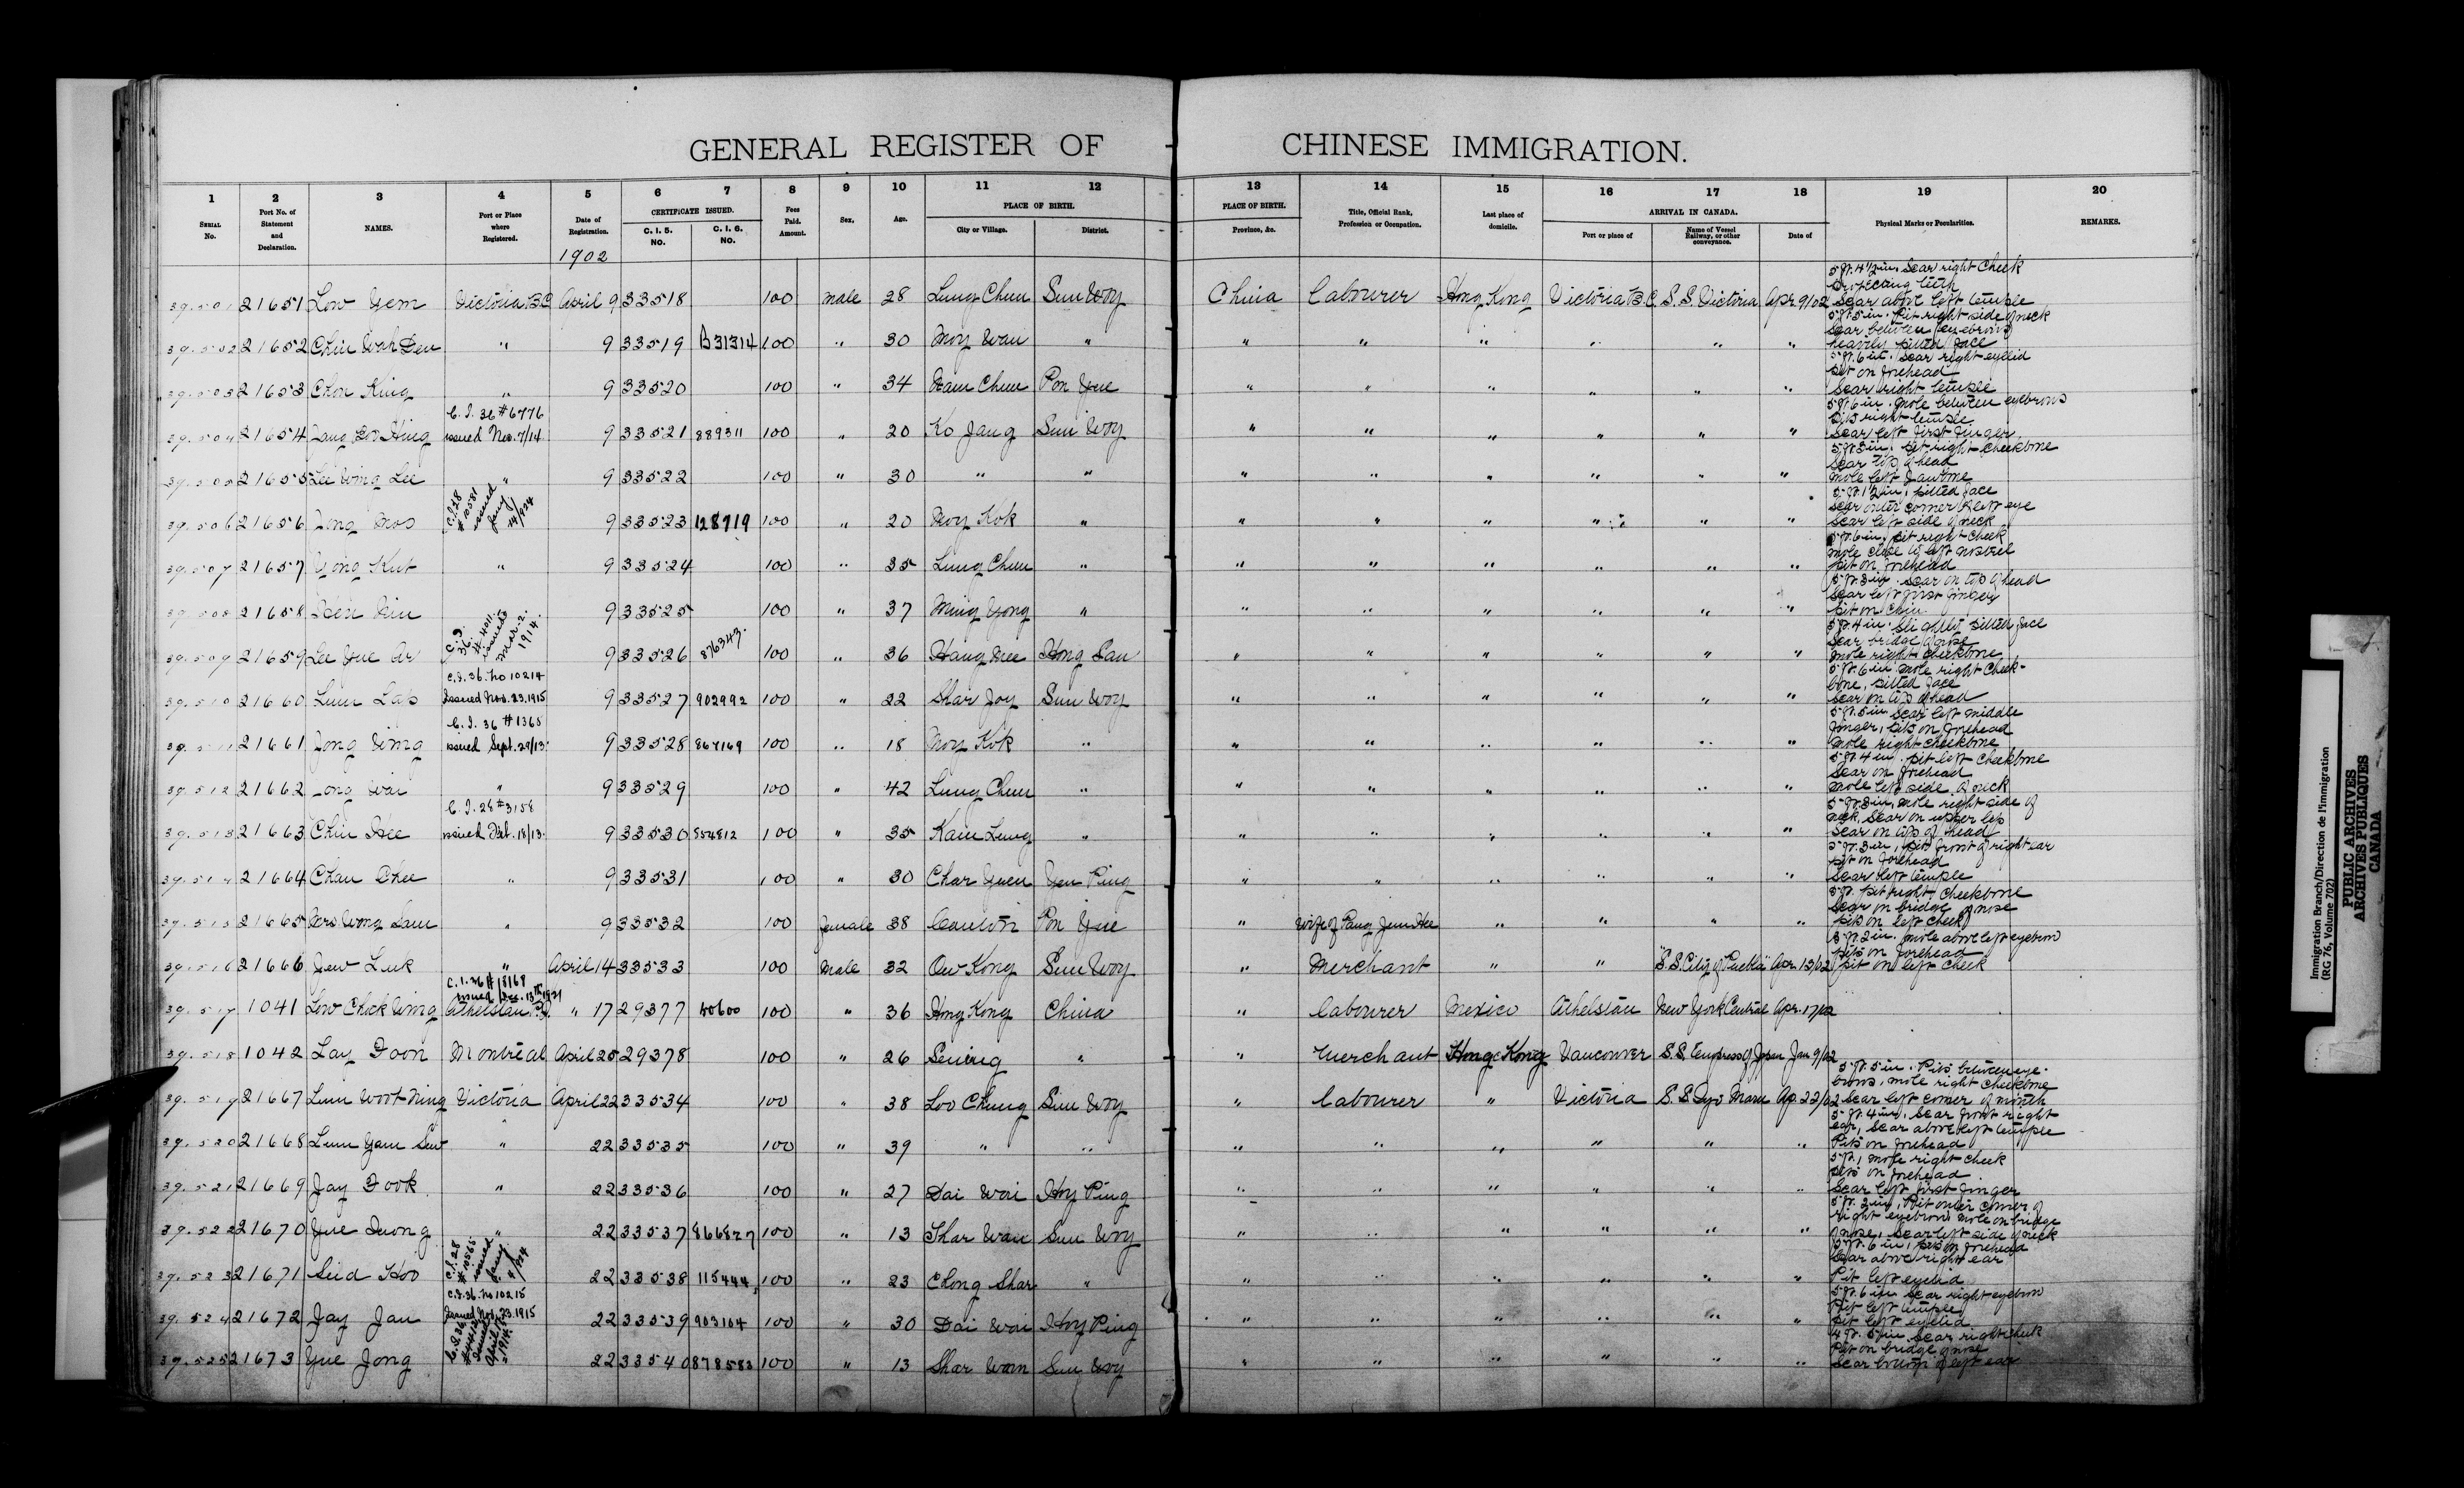 GENERAL REGISTER OF CHINESE IMMIGRATION.
1 2 3 4 5 6 7 8 9 10 11 12 13 14 15 16 17 18 19 20
SERIAL No. Port No. of Statement and Declaration. NAMES. Port or Place where Registered. Date of Registration. CERTIFICATE ISSUED. C. I. 5. NO. C. I. 6. NO. Fees Paid. Amount. Sex. Age. PLACE OF BIRTH. City or Village. District. PLACE OF BIRTH. Province, &c. Title, Official Rank, Profession or Occupation. Last place of domicile. ARRIVAL IN CANADA. Port or place of Name of Vessel Railway, or other conveyance. Date of Physical Marks or Peculiarities. REMARKS.
1902
39501 21651 Low Yem Victoria BC April 9 33518 100 male 28 Lung Chuu Sun Woy China labourer Hong Kong Victoria B.C. S.S. Victoria Apr 9/02 5 ft. 4½ in. Scar right cheek Projecting teeth Scar above left temple
39502 21652 " 9 33519 B31314 100 " 30 Moy Wan " " " " " " " 5 ft. 5 in. Pit right side of neck Scar between eyebrows heavily pitted face
39503 21653 Chon King " 9 33520 100 " 34 Nam Chuu Pon Yue " " " " " " 5 ft. 6 in. Scar right eyelid Pit on forehead Scar right temple
39504 21654 C.I. 36 #6776 issued Nov. 7/14 9 33521 889311 100 " 20 Ko Jang Sun Woy " " " " " " 5 ft. 6 in. Mole between eyebrows Pits right temple Scar left first finger
39505 21655 Lee Wing Lee " 9 33522 100 " 30 " " " " " " " " 5 ft. 3 in. Pit right cheekbone Scar top of head Mole left jawbone
39506 21656 Jong Moo C.I. 28 #10581 issued Jany 14/924 9 33523 128719 100 " 20 Moy Kok " " " " " " " 5 ft. 1½ in. pitted face Scar outer corner left eye Scar left side of neck
39507 21657 Wong Kut " 9 33524 100 " 35 Lung Chuu " " " " " " " 5 ft. 6 in. pit right cheek mole close to left nostril Pit on forehead
39508 21658 9 33525 100 " 37 Ming Yong " " " " " " " 5 ft. 3 in. Scar on top of head Scar left first finger Pit on chin
39509 21659 Lee Yue Ar C.I. 36. #4011 issued Mar. 2. 1914. 9 33526 876343. 100 " 36 Hang Mee Hong San " " " " " " 5 ft. 4 in. Slightly pitted face Scar bridge of nose Mole right cheekbone
39510 21660 Lum Lap C.I. 36. No 10214 Issued Nov. 23.1915 9 33527 902992 100 " 22 Shar Joy Sun Woy " " " " " " 5 ft. 6 in. mole right cheekbone, pitted face Scar on top of head
39511 21661 Jong Wing C.I. 36 #1365 issued Sept. 29/13 9 33528 867169 100 " 18 Moy Kok " " " " " " " 5 ft. 5 in. Scar left middle finger, pits on forehead Mole right cheekbone
39512 21662 Wai " 9 33529 100 " 42 Lung Chuu " " " " " " " 5 ft. 4 in. pit left cheekbone Scar on forehead Mole left side of neck
39513 21663 Chin Hee C.I. 28 #3158 issued 18/13 9 33530 854812 100 " 35 Kam Lung " " " " " " " 5 ft. 3 in. mole right side of neck, Scar on upper lip Scar on top of head
39514 21664 Chan Chee " 9 33531 100 " 30 Char Yuen Yen Ping " " " " " " 5 ft. 3 in. pits front of right ear Pit on forehead Scar left temple
39515 21665 Mrs Wong Sam " 9 33532 100 female 38 Canton Pon Yue " Wife of Pang Jun Hee " " " " 5 ft. pit right cheekbone Scar on bridge of nose Pits on left cheek
39516 21666 Jew Luk " April 14 33533 100 Male 32 Ow Kong Sun Woy " Merchant " " "S.S. City of Puebla" Apr 13/02 5 ft. 2 in. mole above left eyebrow Pits on forehead Pit on left cheek
39517 1041 Low Chick Wing C.I. 36 # 18169 issued Dec. 13th 1921 Athelstan P.Q. " 17 29377 40600 100 " 36 Hong Kong China " labourer Mexico Athelstan New York Central Apr. 17/02
39518 1042 Lay Foon Montreal April 25 29378 100 " 26 Sening " " merchant Hong Kong Vancouver S.S. Empress of Japan Jan 9/02
39519 21667 Lum Woot Ning Victoria April 22 33534 100 " 38 Loo Chung Sun Woy " labourer " Victoria S.S. Oyo Maru Ap. 22/02 5 ft. 5 in. Pits between eyebrows, mole right cheekbone Scar left corner of mouth
39520 21668 Lum Yam Sew " 22 33535 100 " 39 " " " " " " " " 5 ft. 4 in. Scar front right ear, Scar above left temple Pits on forehead
39521 21669 Jay Fook " 22 33536 100 " 27 Dai Wai Hoy Ping " " " " " " 5 ft., mole right cheek Pits on forehead Scar left first finger
39522 21670 Yue Duong " 22 33537 866827 100 " 13 Shar Wan Sun Woy " " " " " " 5 ft. 2 in. Pit outer corner of right eyebrow Mole on bridge of nose, Scar left side of neck
39523 21671 Seid Hoo C.I. 28 #10565 issued Jany. 4/924 22 33538 115444 100 " 23 Chong Shar " " " " " " " 5 ft. 6 in. pits on forehead Scar above right ear Pit left eyelid
39524 21672 Jay Jan C.I. 36. No 10215 Issued Nov. 23.1915 22 33539 903104 100 " 30 Dai Wai Hoy Ping " " " " " " 5 ft. 6 in. Scar right eyebrow Pit left temple Pit left eyelid
39525 21673 Yue Jong C.I. 36. April 1914 22 33540 878583 100 " 13 Shar Warn Sun Woy " " " " " " 4 ft. 5 in. Scar right cheek Pit on bridge of nose Scar bottom of left ear
Immigration Branch/Direction de l'immigration
(RG 76, Volume 702)
PUBLIC ARCHIVES
ARCHIVES PUBLIQUES
CANADA